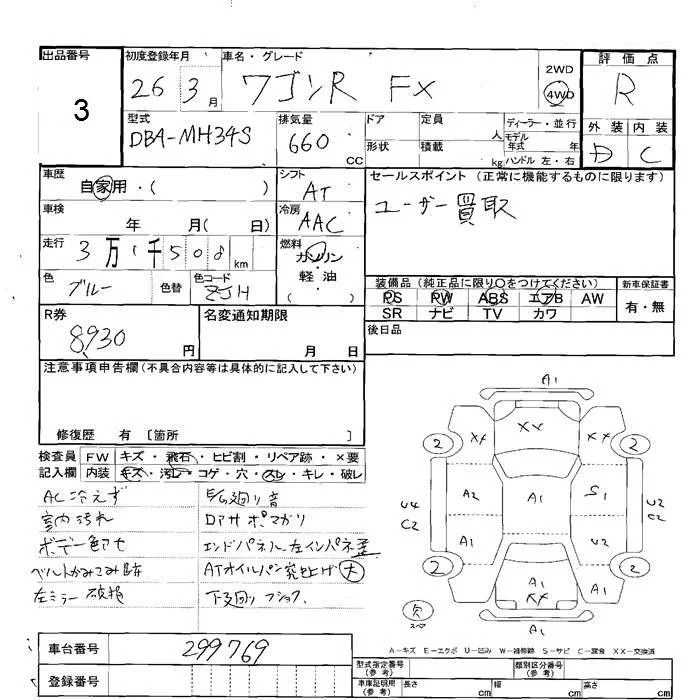 出品番号 初度登録年月 車名・グレード 評価点
3
26 3月 ワゴンR FX 2WD 4WD R
型式 排気量 ドア 定員 人 ディーラー・並行 外装 内装
DBA-MH34S 660 CC 形状 積載 kg モデル年式 年 ハンドル 左・右 D C
車歴 シフト セールスポイント (正常に機能するものに限ります)
自家用・( ) AT ユーザー買取
車検 冷房
年 月( 日) AAC
走行 燃料
3万1千508km ガソリン・軽油・( )
色 色替 色コード 装備品 (純正品に限り○をつけてください) 新車保証書
ブルー ZJH PS PW ABS エアB AW 有・無
SR ナビ TV カワ
R券 名変通知期限 後日品
8,930円 月 日
注意事項申告欄(不具合内容等は具体的に記入して下さい)
修復歴 有 〔箇所 〕
検査員 FW キズ・飛石・ヒビ割・リペア跡・×要
記入欄 内装 キズ・汚レ・コゲ・穴・スレ・キレ・破レ
AC冷えず
室内汚れ
ボデー色アセ
ベルトかみこみ跡
左ミラー破損
ドアサポマガリ
エンドパネル・左インパネ歪
ATオイルパン突上げ大
下廻りフショク
A1
XX
XX XX
2 2
A2 A1 S1
U4 C2 U2 C2
A1 U2
2 2
A1 XX A1
欠 スペア
A1
A-キズ E-エクボ U-凹み W-補修跡 S-サビ C-腐食 XX-交換済
車台番号 299769
登録番号
型式指定番号(参考) 類別区分番号(参考)
車庫証明用(参考) 長さ cm 幅 cm 高さ cm